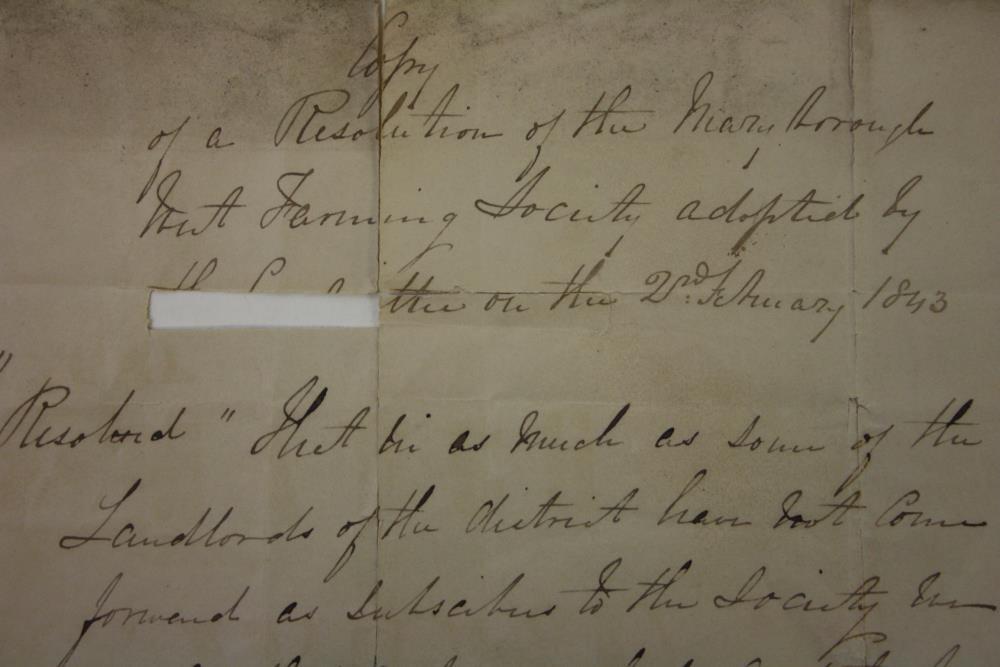 Copy
of a Resolution of the Maryborough
West Farming Society adopted by
the on the 2nd. February 1843
"Resolved" That in as much as some of the
Landlords of the district have not come
forward as subscibers to the Society